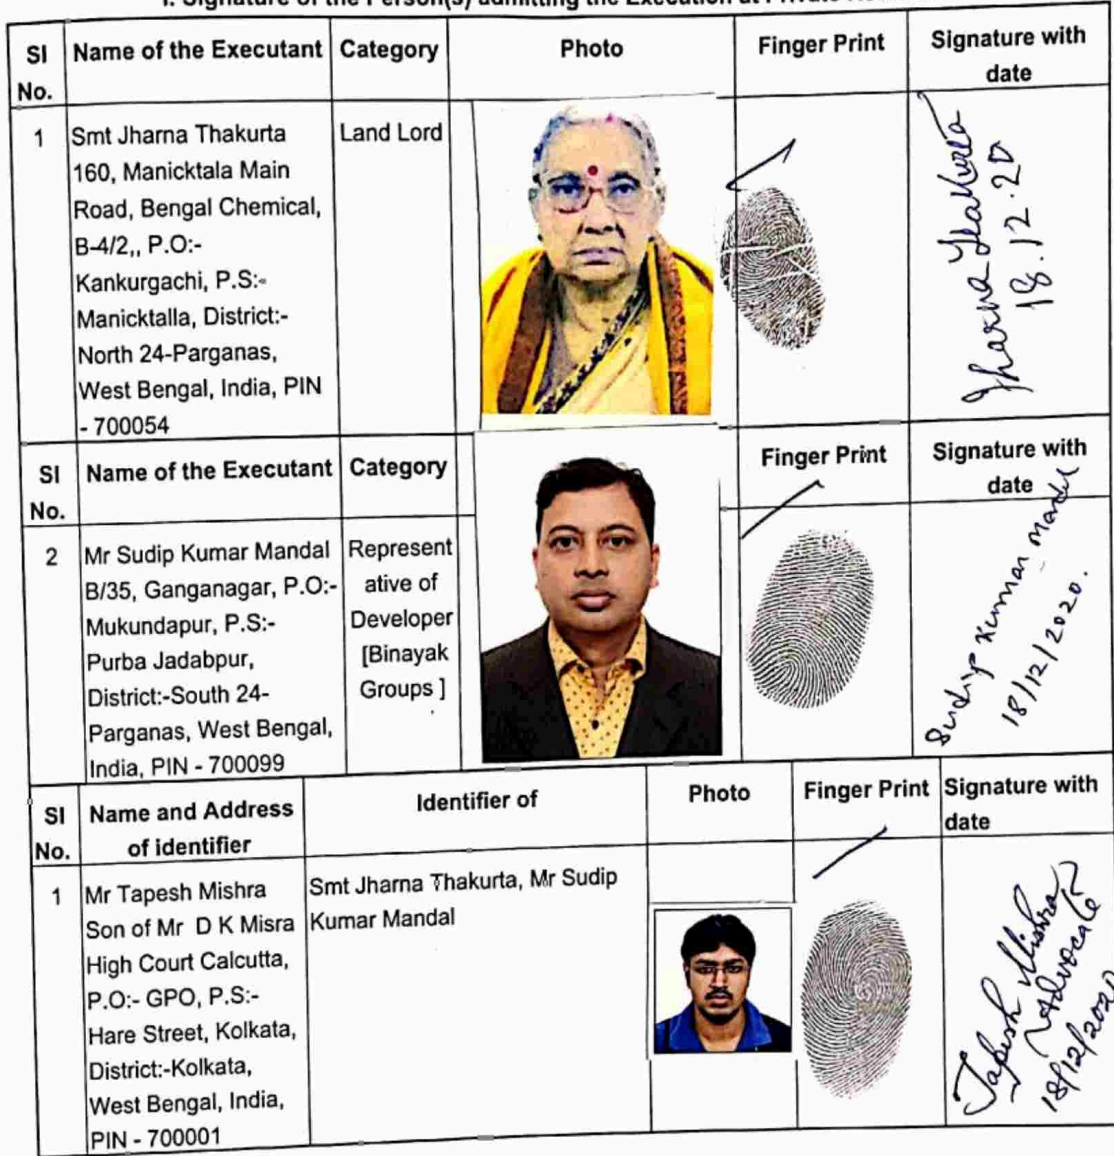 I. Signature of the Person(s) admitting the Execution at Private
SI No. Name of the Executant Category Photo Finger Print Signature with date
1
Smt Jharna Thakurta
160, Manicktala Main
Road, Bengal Chemical,
B-4/2,, P.O:-
Kankurgachi, P.S:-
Manicktalla, District:-
North 24-Parganas,
West Bengal, India, PIN
- 700054
Land Lord
Jharna Thakurta
18.12.20
SI No. Name of the Executant Category Finger Print Signature with date
2
Mr Sudip Kumar Mandal
B/35, Ganganagar, P.O:-
Mukundapur, P.S:-
Purba Jadabpur,
District:-South 24-
Parganas, West Bengal,
India, PIN - 700099
Represent
ative of
Developer
[Binayak
Groups ]
Sudip Kumar Mandal
18/12/2020.
SI No. Name and Address of identifier Identifier of Photo Finger Print Signature with date
1
Mr Tapesh Mishra
Son of Mr D K Misra
High Court Calcutta,
P.O:- GPO, P.S:-
Hare Street, Kolkata,
District:-Kolkata,
West Bengal, India,
PIN - 700001
Smt Jharna Thakurta, Mr Sudip
Kumar Mandal
Tapesh Mishra
Advocate
18/12/2020